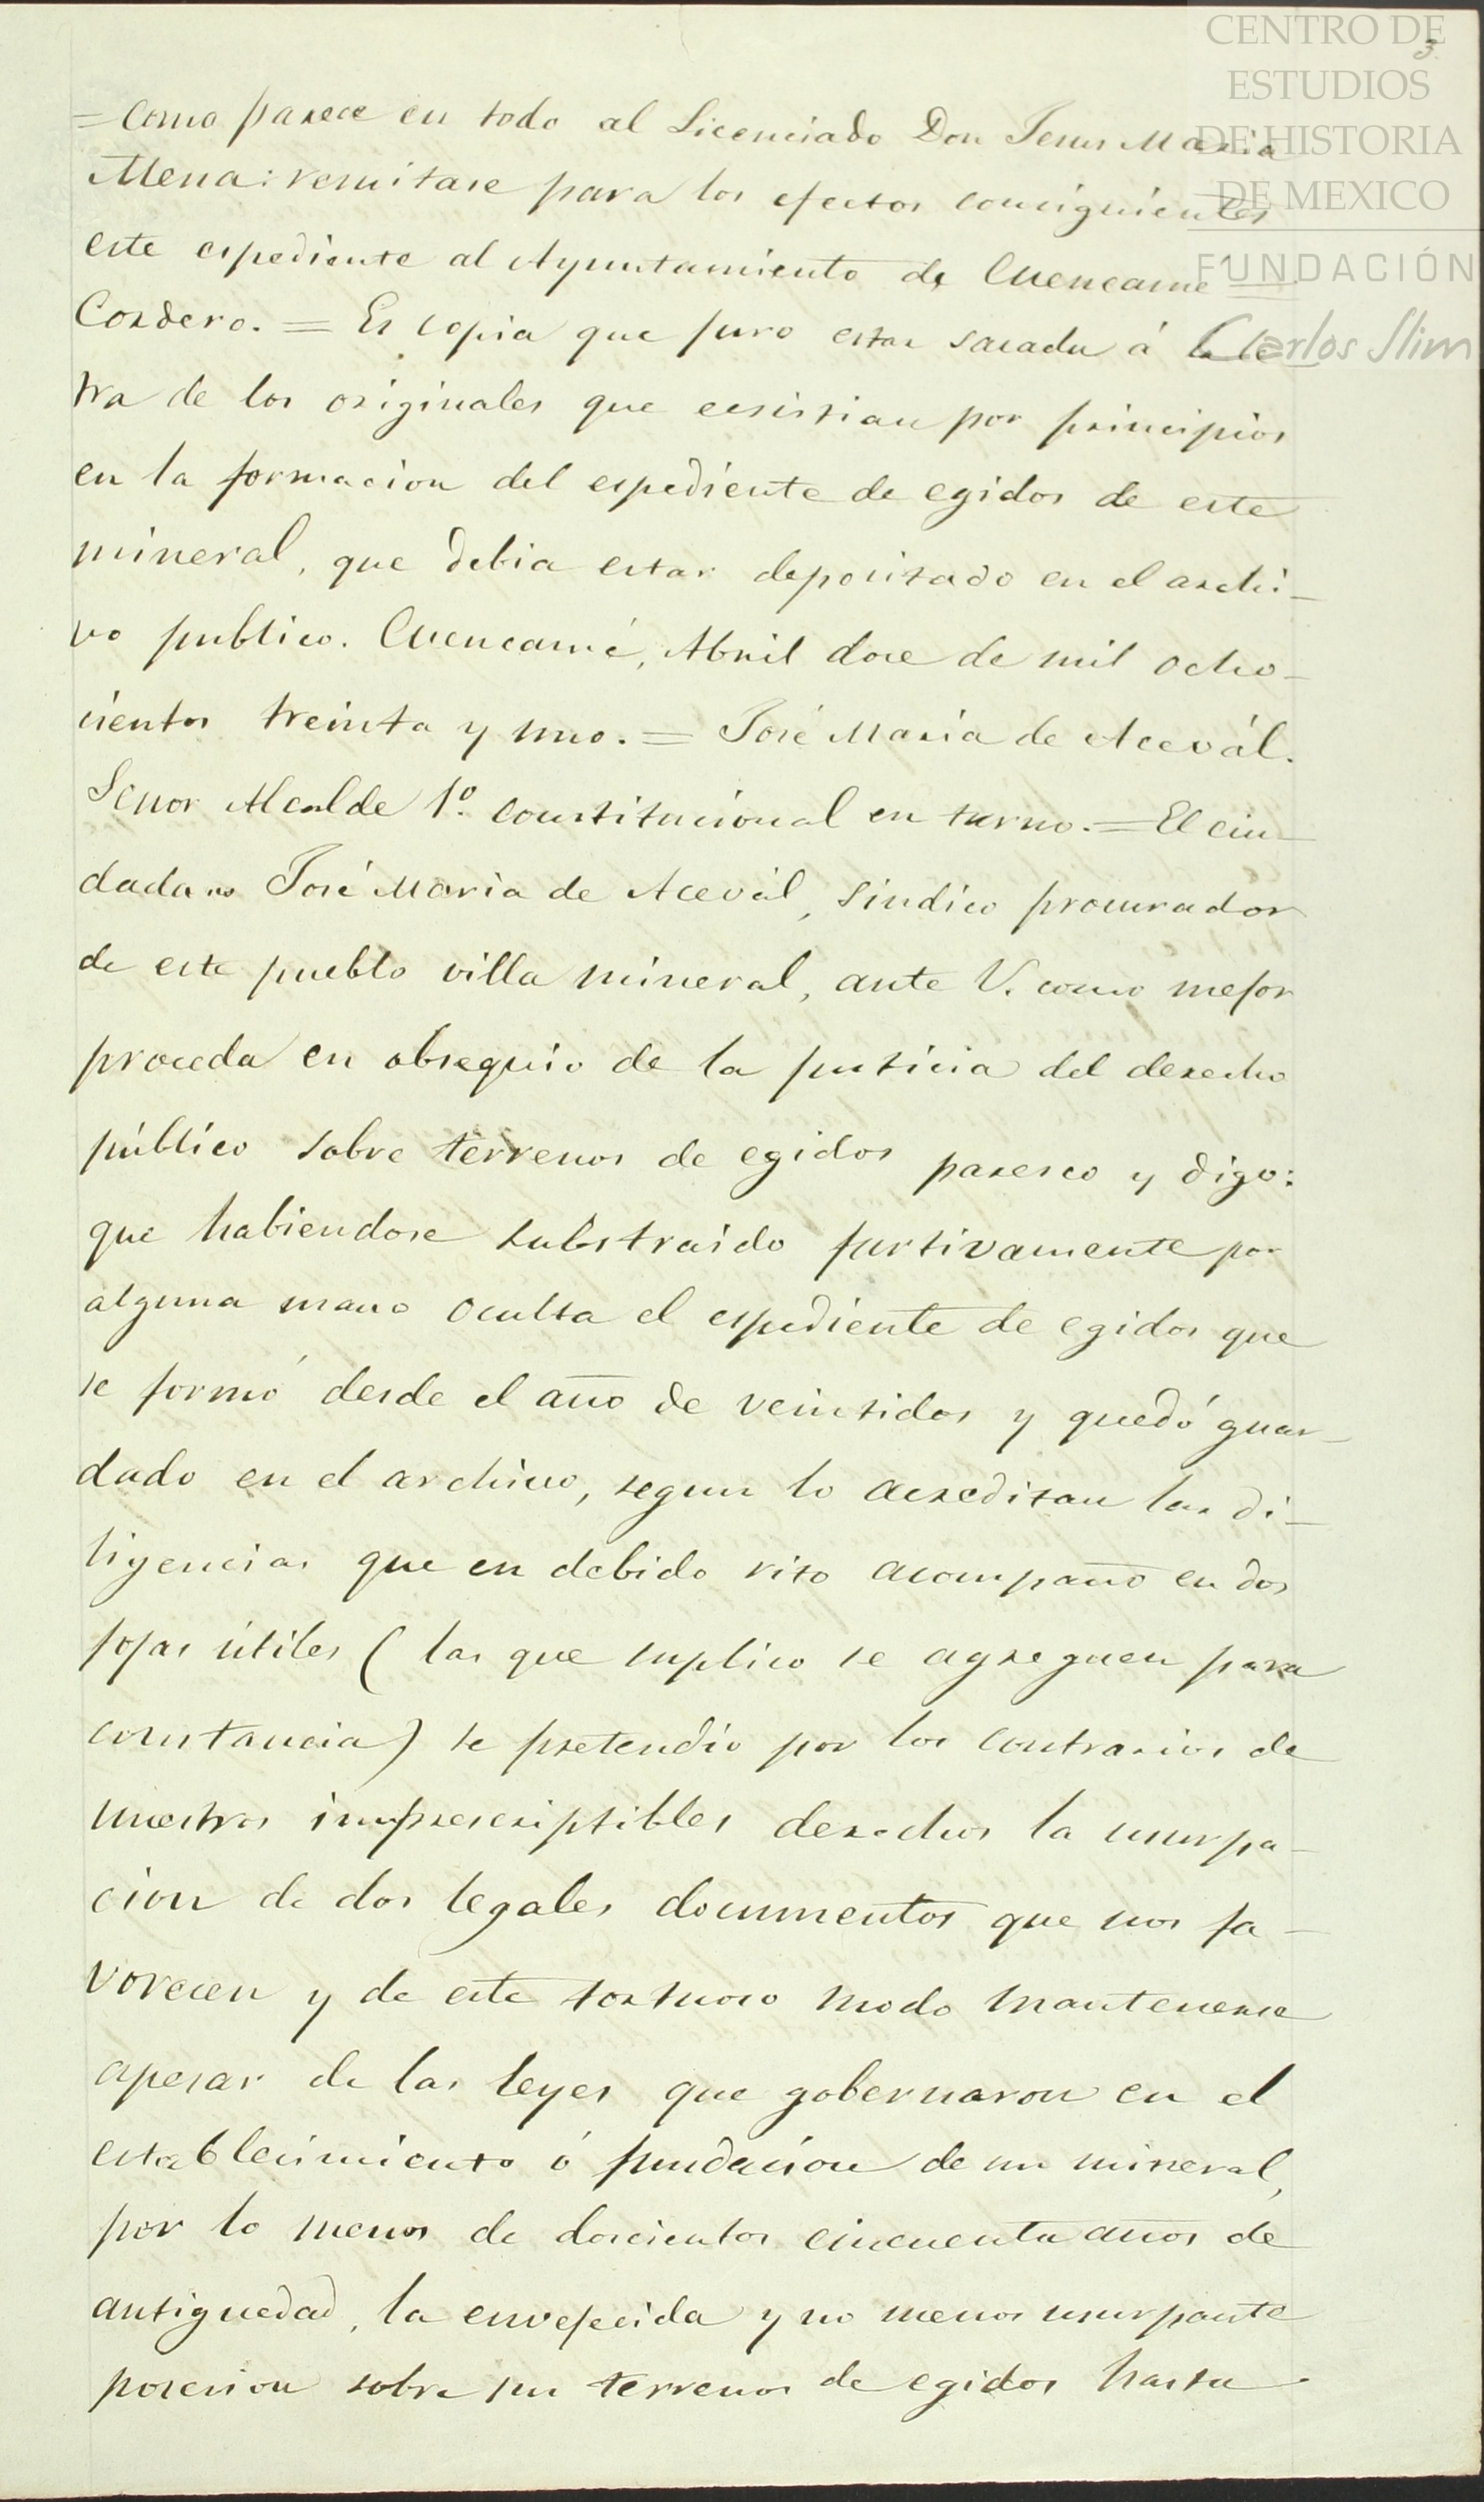 CENTRO DE
ESTUDIOS
DE HISTORIA
DE MEXICO
FUNDACIÓN
Carlos Slim
3
= Como parece en todo al Licenciado Don Jesus Maria
Mena: remitase para los efectos consiguientes
este espediente al Ayuntamiento de Cuencamé
Cordero. = Es copia que juro estar sacada á la le
tra de los originales que ecsistian por principios
en la formacion del espediente de egidos de este
mineral, que debia estar depositado en el archi-
vo publico. Cuencamé, Abril doce de mil ocho-
cientos treinta y uno. = José Maria de Acevál.
Señor Alcalde 1º. constitucional en turno. = El ciu-
dadano José Maria de Acevál, sindico procurador
de este pueblo villa mineral, ante V. como mejor
proceda en obsequio de la justicia del derecho
público sobre terrenos de egidos paresco y digo:
que habiendose substraido furtivamente por
alguna mano oculta el espediente de egidos que
se formó desde el año de veintidos y quedó guar-
dado en el archivo, segun lo acreditan las di-
ligencias que en debido rito acompaño en dos
fojas útiles (las que suplico se agreguen para
constancia) se pretendio por los contrarios de
nuestros imprescriptibles derechos la usurpa-
cion de dos legales documentos que nos fa-
vorecen y de este tortuoso modo mantenerse
apesar de las leyes que gobernaron en el
establecimiento ó fundacion de un mineral,
por lo menos de doscientos cincuenta años de
antiguedad, la envejecida y no menos usurpante
posesion sobre sus terrenos de egidos hasta